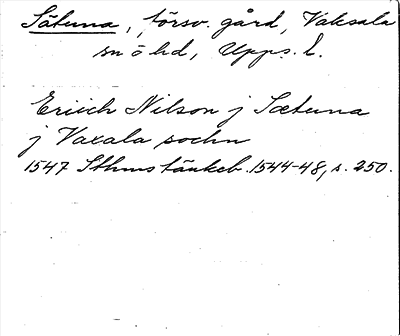 Sätuna, försv. gård, Vaksala
sn o hd, Upps. l.
Erich Nilson j Sætuna
j Vaxala sochn
1547 Sthms tänkeb. 1544-48, s. 250.